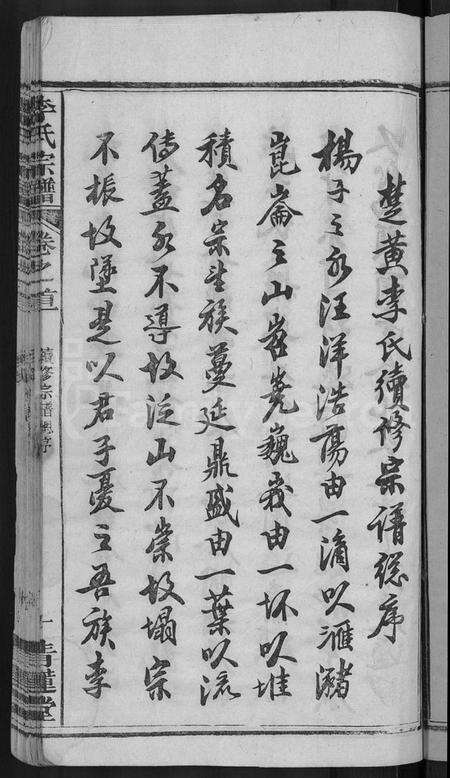 楚黄李氏續修宗譜總序
楊子之水汪洋浩蕩由一滴以滙瀦
崑崙之山岧嶤巍峩由一坏以堆
積名宗望族蔓延鼎盛由一葉以流
傳蓋水不導故泛山不崇故塌宗
不振故墜是以君子憂之吾族李
李氏宗譜
卷之首
續修宗譜總序
一
青蓮堂